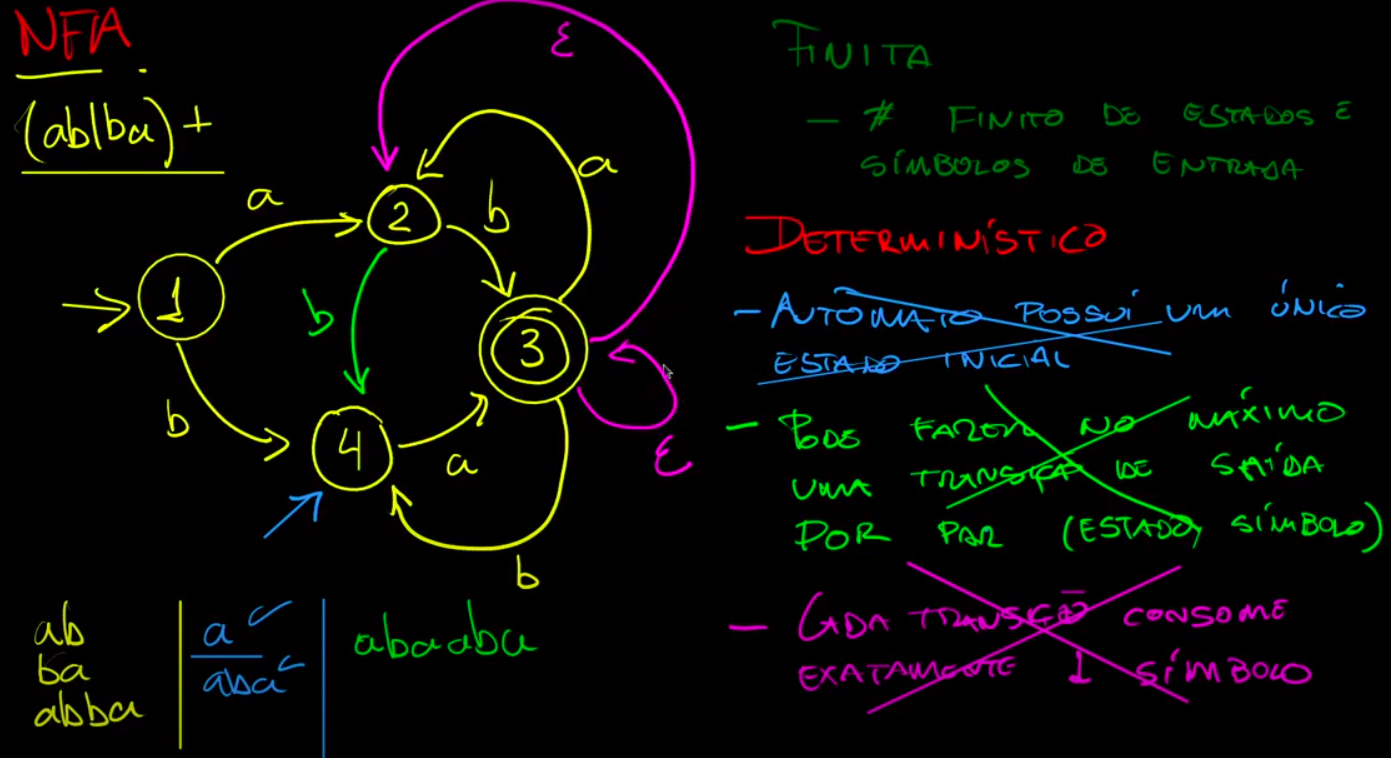 NFA
(ab|ba)+
ε
a
a
2
b
b
1
3
b
4
a
ε
b
ab
ba
abba
a
aba
abaaba
FINITA
- # FINITO DE ESTADOS E
SÍMBOLOS DE ENTRADA
DETERMINÍSTICO
- AUTÔMATO POSSUI UM ÚNICO
ESTADO INICIAL
- PODE FAZER NO MÁXIMO
UMA TRANSIÇÃO DE SAÍDA
POR PAR (ESTADO, SÍMBOLO)
- CADA TRANSIÇÃO CONSOME
EXATAMENTE 1 SÍMBOLO